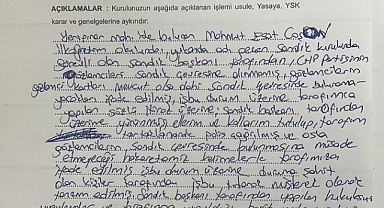 AÇIKLAMALAR : Kurulunuzun aşağıda açıklanan işlemi usule, Yasaya, YSK
karar ve genelgelerine aykırıdır:
mah.'de bulunan Mahmut Esat
İlköğretim okulunda, yukarıda adı geçen Sandık kurulunda
görevli olan sandık başkanı tarafından, CHP partisinin
gözlemcileri sandık çevresine alınmamış, gözlemcilerin
kartları mevcut olsa dahi Sandık çevresinde bulunama-
yacakları ifade edilmiş, işbu durum üzerine tarafımca
yapılan sözlü itiraz üzerine, Sandık başkanı tarafından
üzerime yürünmüş, ellerim ve kollarım tutulup, tarafım
tartaklanarak polis çağırılmış ve asla
gözlemcilerin, Sandık çevresinde bulunmasına müsade
etmeyeceği hakaretamiz kelimelerle tarafımıza
ifade edilmiş işbu durum üzerine duruma şahit
olan kişiler tarafından işbu tutanak müşterek olarak
tanzim edilmiş, Sandık başkanı tarafından yapılan hukuksuz